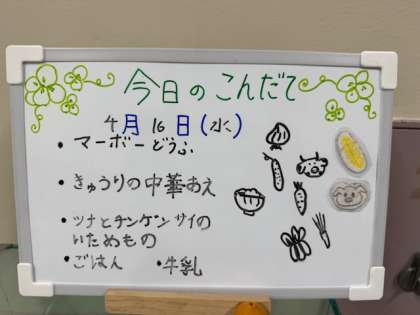 今日のこんだて
4月16日(水)
・マーボーどうふ
・きゅうりの中華あえ
・ツナとチンゲンサイの
いためもの
・ごはん ・牛乳